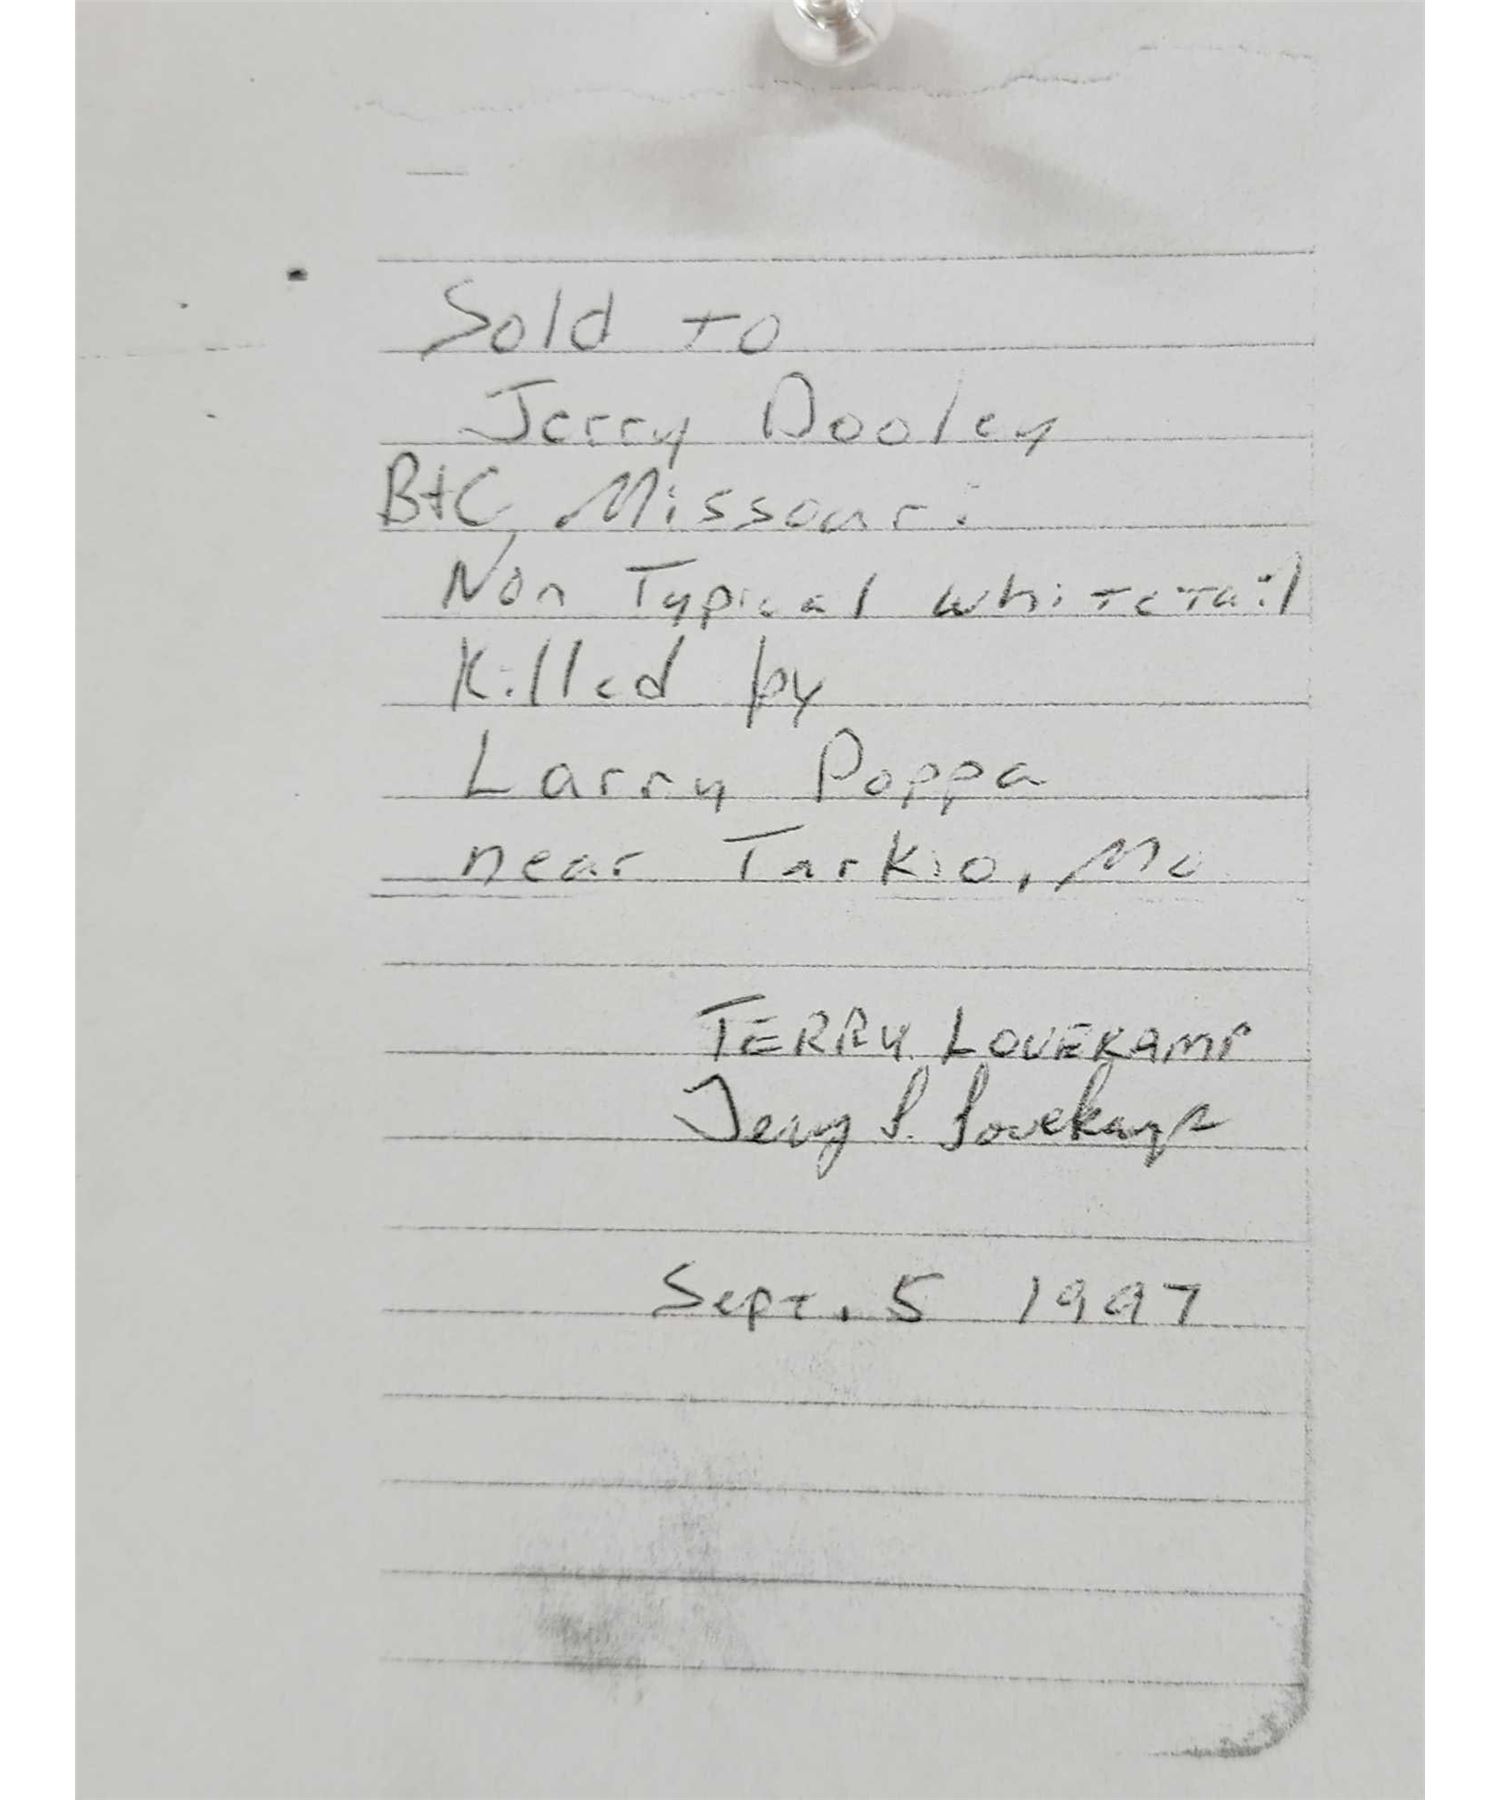 Sold to
Jerry Dooley
B+C Missouri
Non Typical whitetail
Killed by
Larry Poppa
near Tarkio, Mo
TERRY LOVEKAMP
Terry L. Lovekamp
Sept. 5 1997